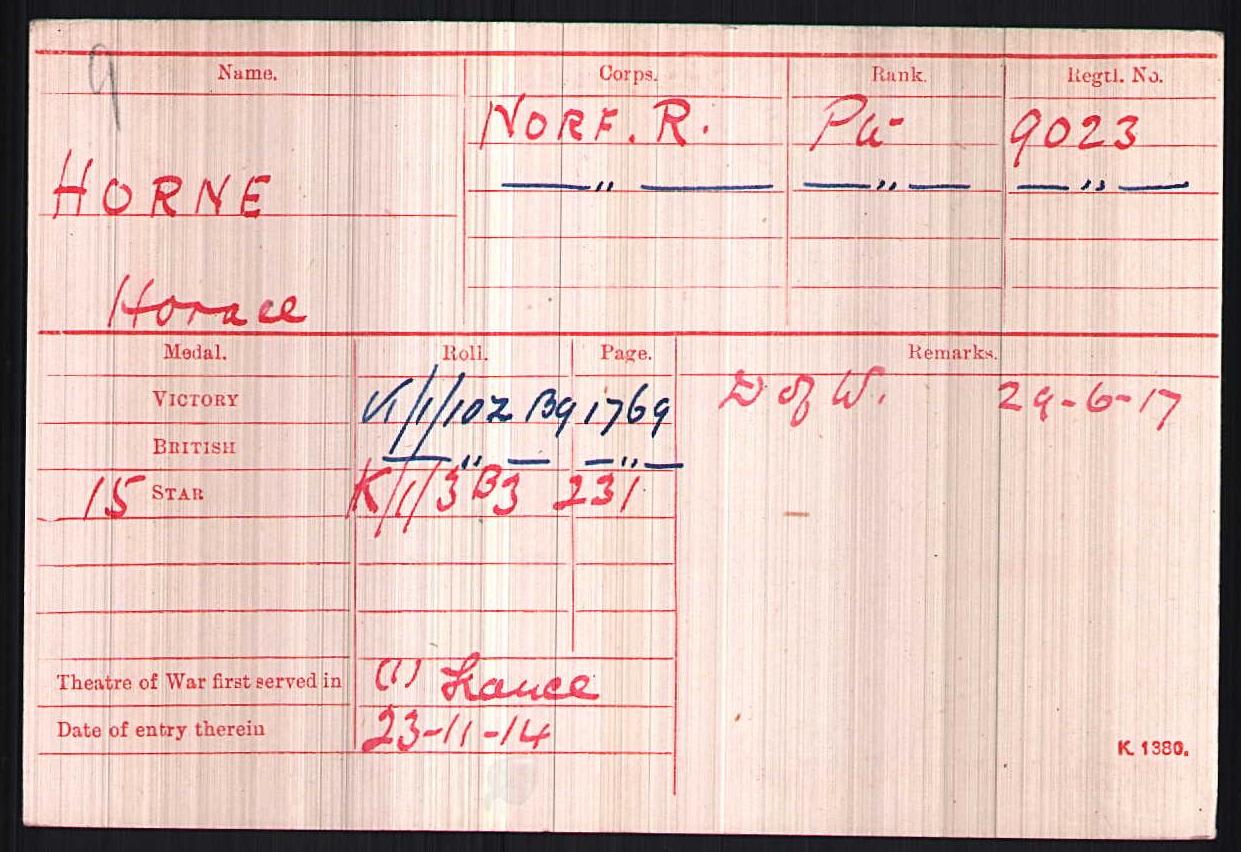 9
Name. Corps. Rank. Regtl. No.
NORF. R. Pte 9023
—"— —"— —"—
HORNE
Horace
Medal. Roll. Page. Remarks.
VICTORY K/1/102 B9 1769 D of W. 29-6-17
BRITISH —"— —"—
15 STAR K/1/3 B3 231
Theatre of War first served in (1) France
Date of entry therein 23-11-14
K. 1380.